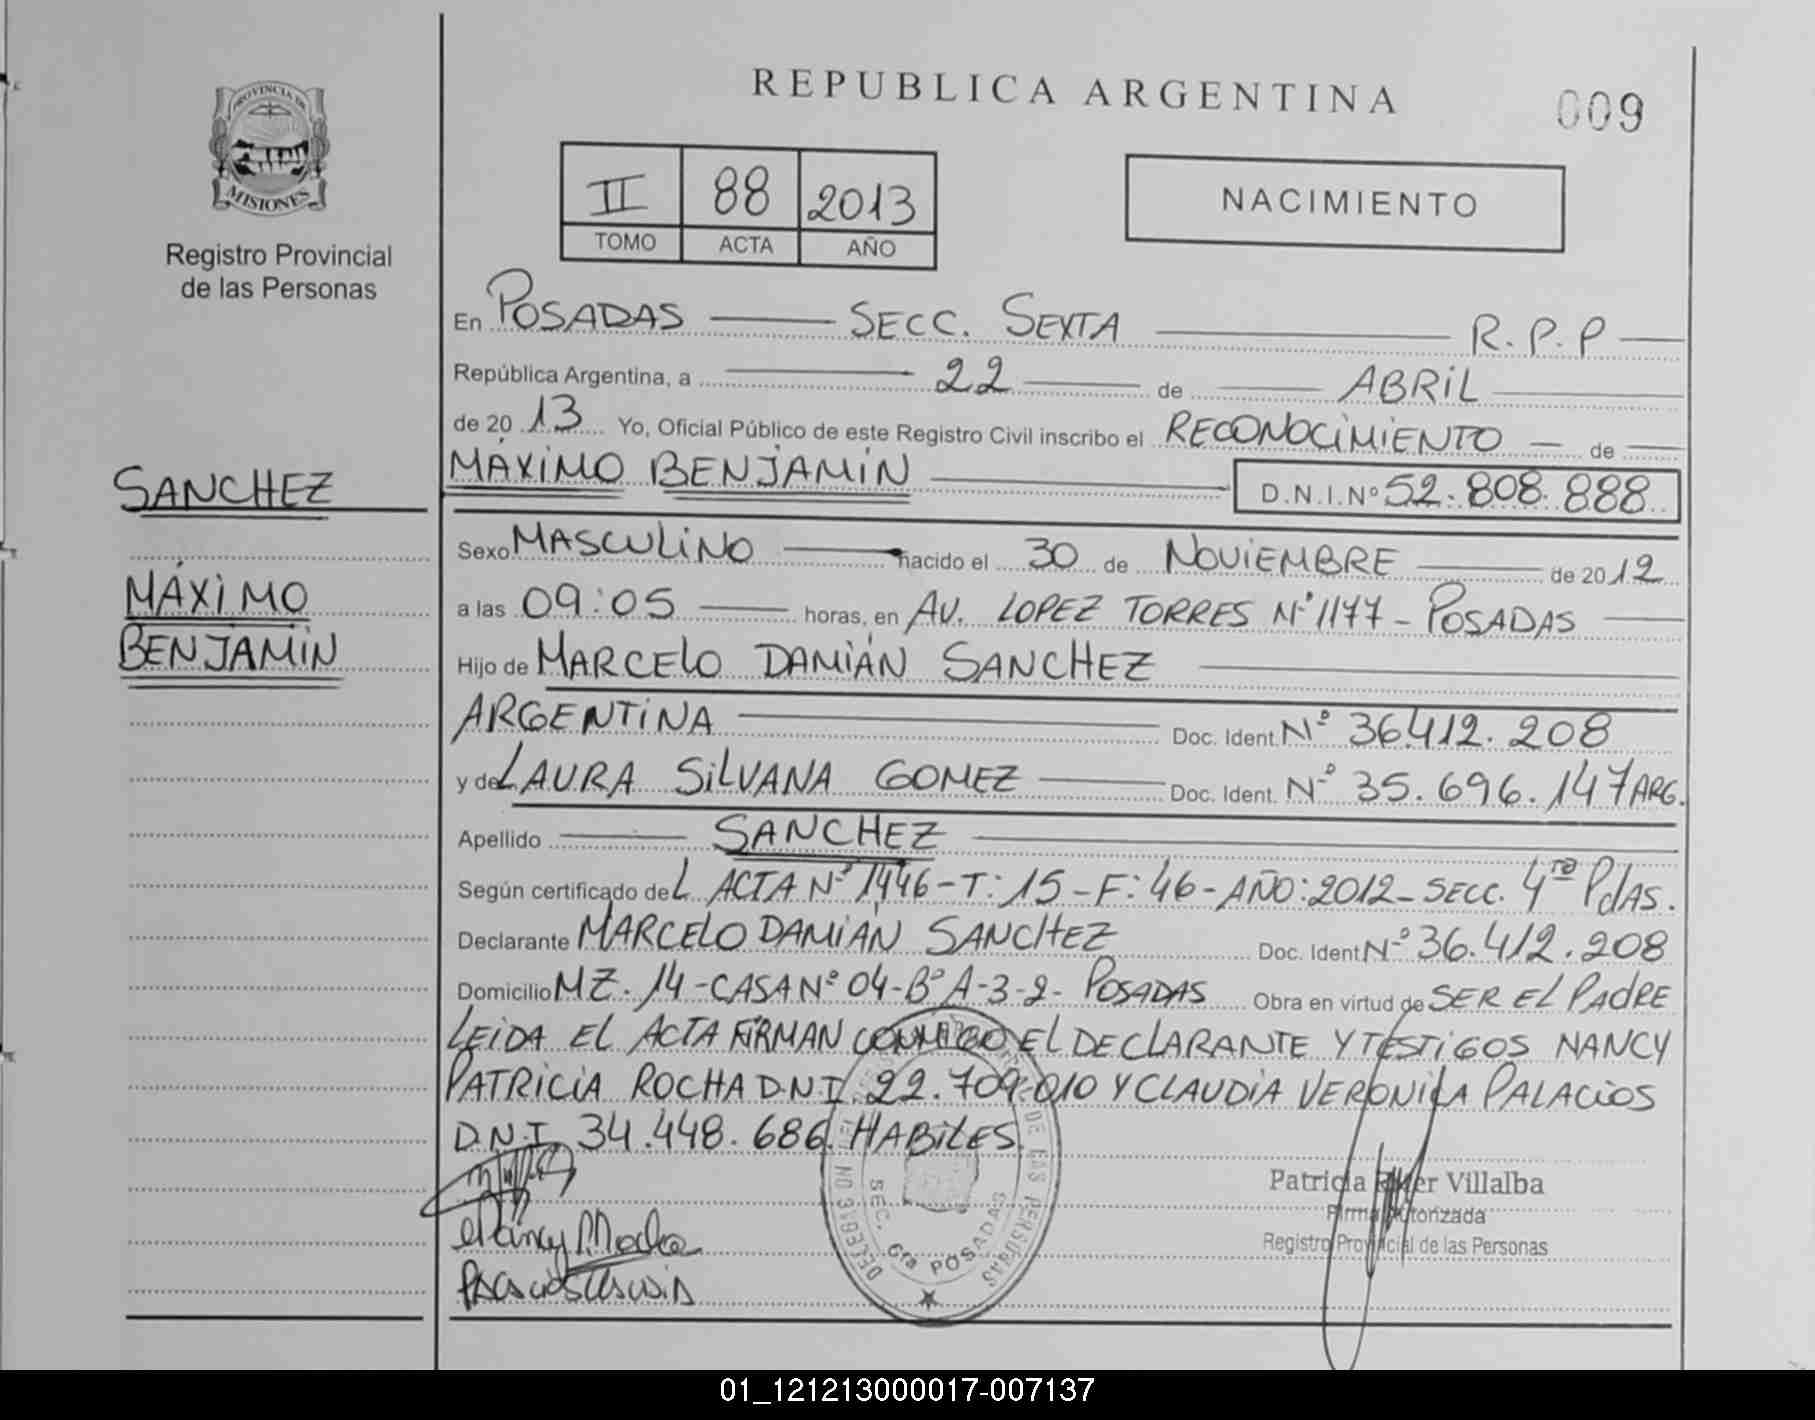 REPUBLICA ARGENTINA
009
PROVINCIA DE
MISIONES
Registro Provincial
de las Personas
II 88 2013
TOMO ACTA AÑO
NACIMIENTO
En POSADAS — SECC. SEXTA — R.P.P —
República Argentina, a — 22 — de — ABRIL —
de 20 13 Yo, Oficial Público de este Registro Civil inscribo el RECONOCIMIENTO — de —
MÁXIMO BENJAMIN — D.N.I.Nº 52.808.888
SANCHEZ
MÁXIMO
BENJAMIN
Sexo MASCULINO — nacido el 30 de NOVIEMBRE — de 2012
a las 09:05 — horas, en AV. LOPEZ TORRES Nº 1177 - POSADAS —
Hijo de MARCELO DAMIÁN SANCHEZ —
ARGENTINA — Doc. Ident. Nº 36.412.208
y de LAURA SILVANA GOMEZ — Doc. Ident. Nº 35.696.147 ARG.
Apellido — SANCHEZ —
Según certificado de L ACTA Nº 1446 - T: 15 - F: 46 - AÑO: 2012 - SECC. 4ta PdAS.
Declarante MARCELO DAMIÁN SANCHEZ Doc. Ident Nº 36.412.208
Domicilio MZ. 14 - CASA Nº 04 - Bº A-3-2 - POSADAS Obra en virtud de SER El PAdRE
LEIDA El ACTA FIRMAN CONMIGO El DECLARANTE Y TESTIGOS NANCY
PATRICIA ROCHA D.N.I. 22.709.010 Y CLAUDIA VERONICA PALACIOS
D.N.I. 34.448.686. HABILES.
DE LAS PERSONAS
SEC. 6ta POSADAS
Patricia Villalba
Firma Autorizada
Registro Provincial de las Personas
01_121213000017-007137